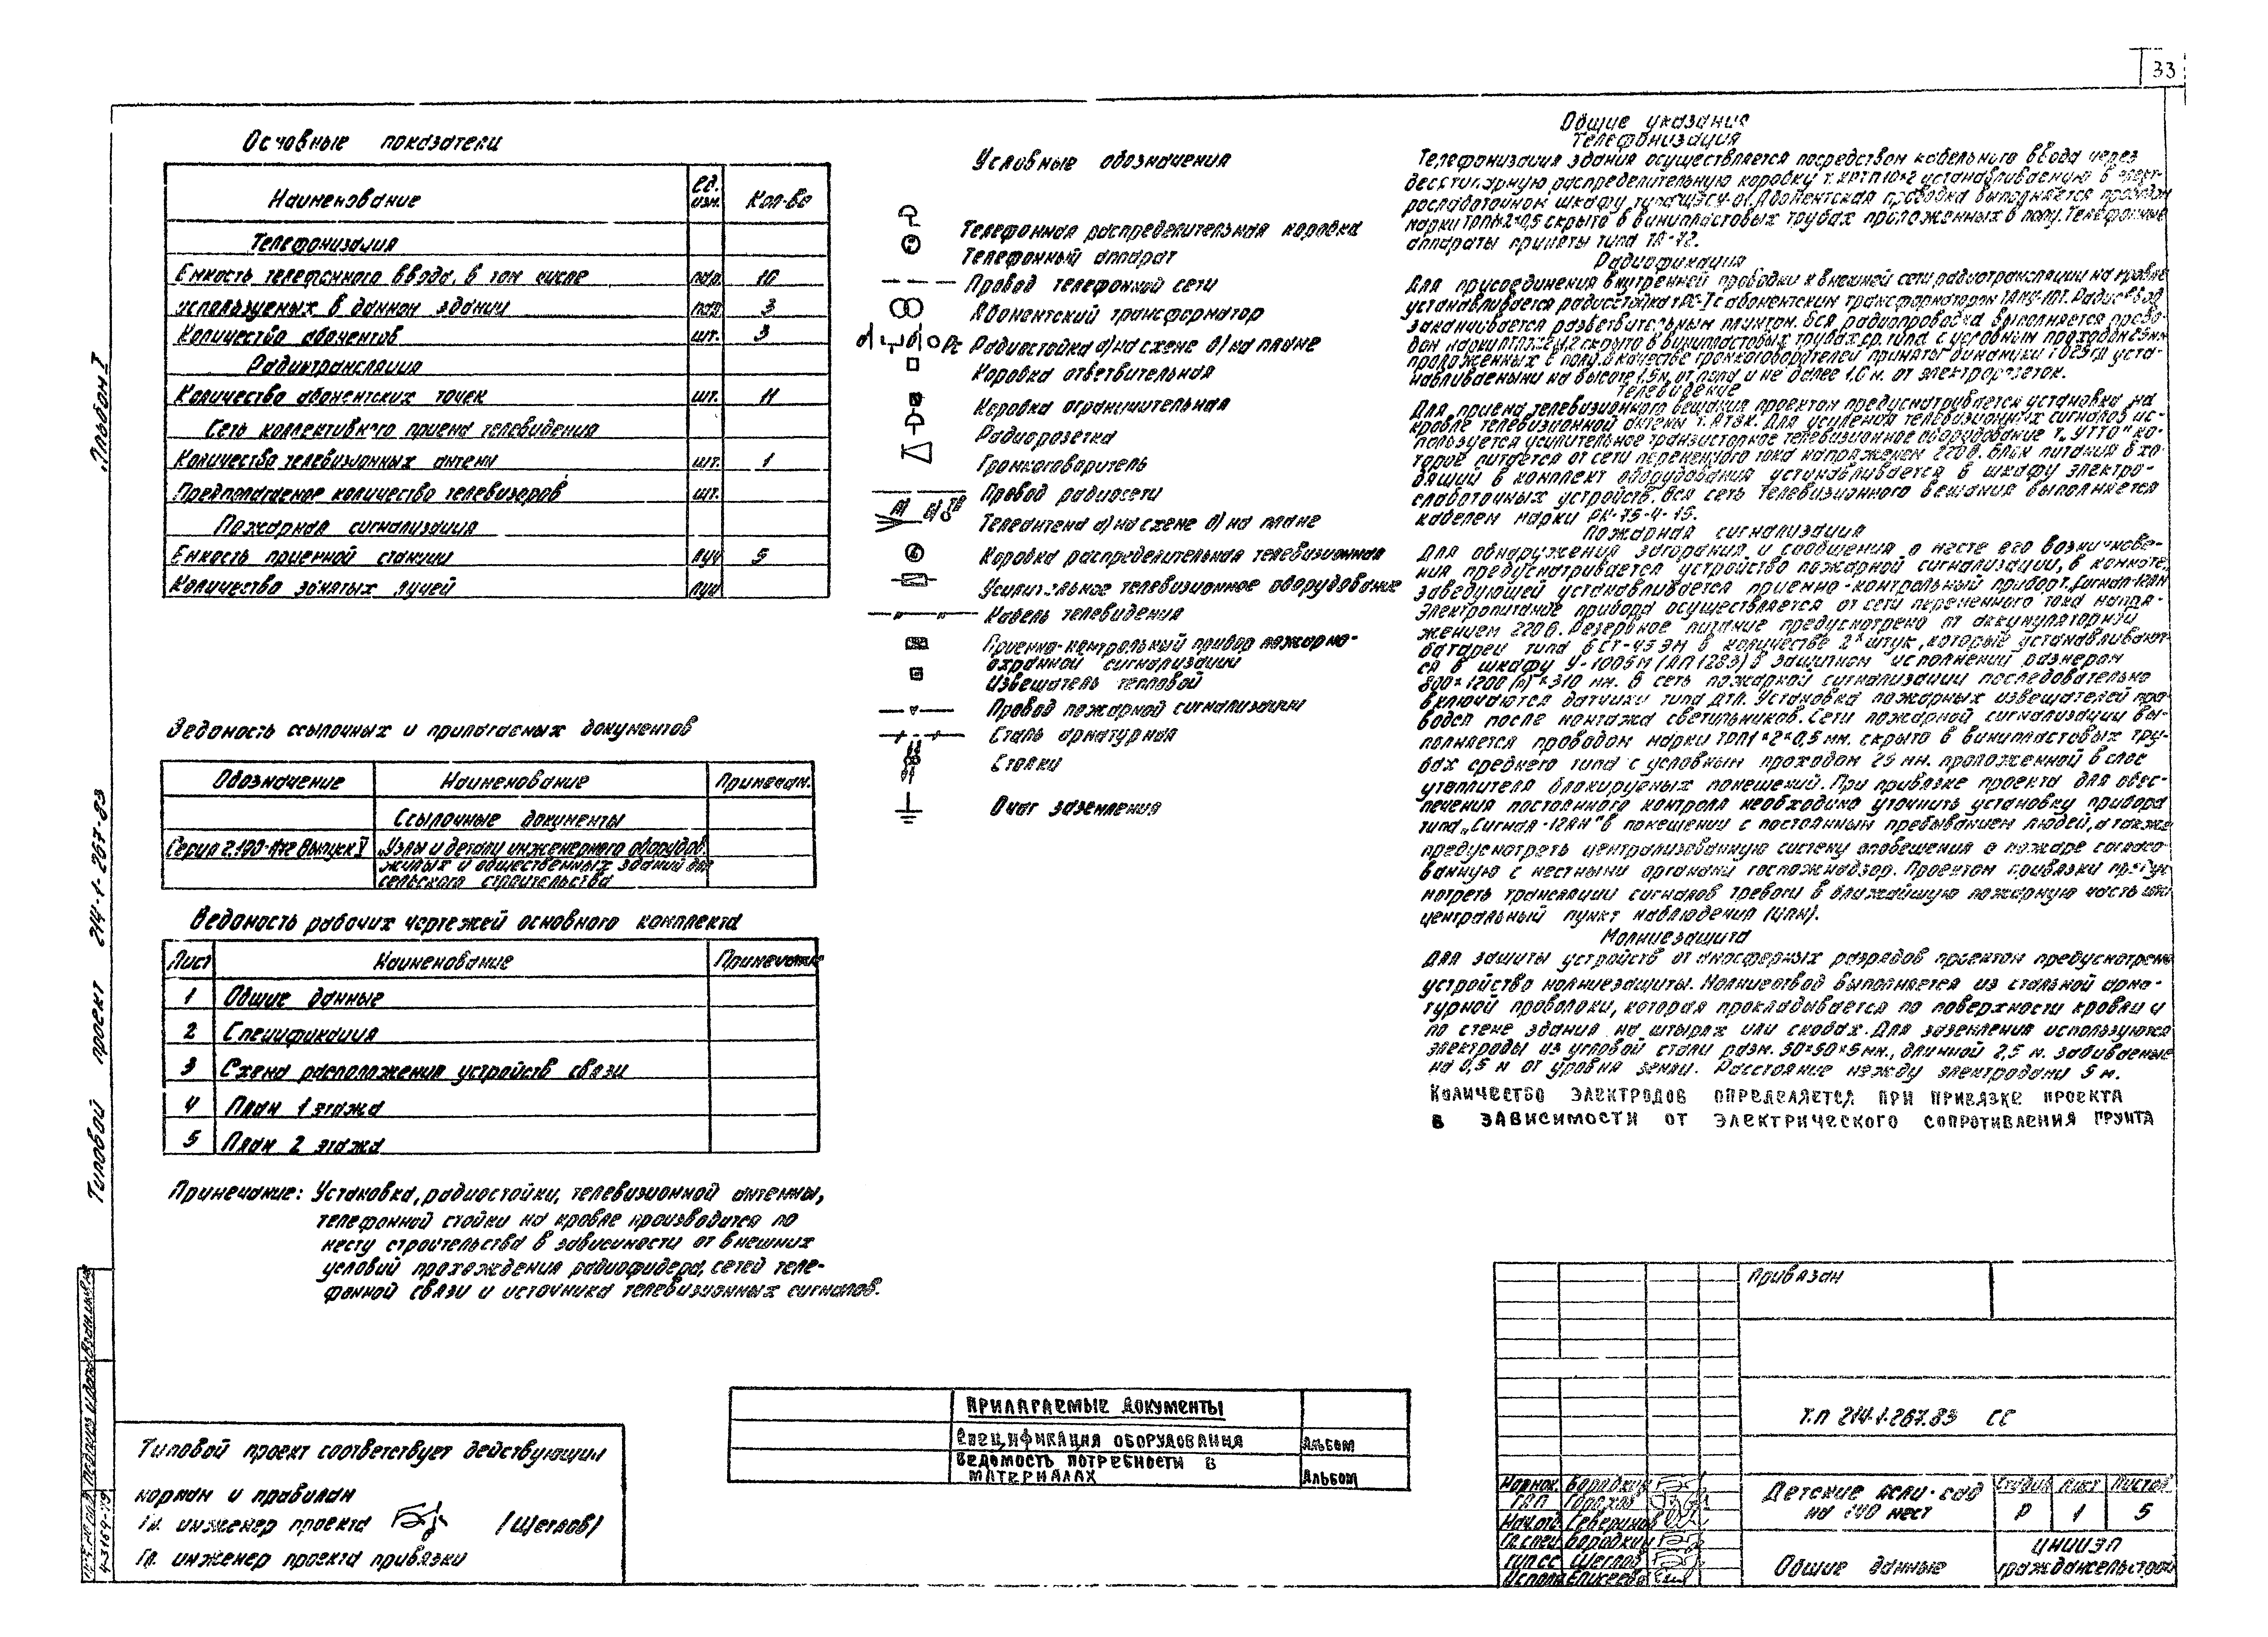 33
Альбом I
Типовой проект 214-1-267-83
Основные показатели
Наименование
Ед. изм.
Кол-во
Телефонизация
Емкость телефонного ввода, в том числе пар 10
используемых в данном здании пар 3
Количество абонентов шт. 3
Радиотрансляция
Количество абонентских точек шт. 11
Сеть коллективного приема телевидения
Количество телевизионных антенн шт. 1
Предполагаемое количество телевизоров шт.
Пожарная сигнализация
Емкость приемной станции луч 5
Количество занятых лучей луч
Ведомость ссылочных и прилагаемых документов
Обозначение Наименование Примечан.
Ссылочные документы
Серия Выпуск "Узлы и детали инженерного оборудов.
жилых и общественных зданий для
сельского строительства
Ведомость рабочих чертежей основного комплекта
Лист Наименование Примечание
1 Общие данные
2 Спецификация
3 Схема расположения устройств связи
4 План 1 этажа
5 План 2 этажа
Примечание: Установка, радиостойки, телевизионной антенны,
телефонной стойки на кровле производится по
месту строительства в зависимости от внешних
условий прохождения радиофидера, сетей теле-
фонной связи и источника телевизионных сигналов.
Условные обозначения
Телефонная распределительная коробка
Телефонный аппарат
Провод телефонной сети
Абонентский трансформатор
Радиостойка а) на схеме б) на плане
Коробка ответвительная
Коробка ограничительная
Радиорозетка
Громкоговоритель
Провод радиосети
Телеантенна а) на схеме б) на плане
Коробка распределительная телевизионная
Усилительное телевизионное оборудование
Кабель телевидения
Приемно-контрольный прибор пожарно-
охранной сигнализации
Извещатель тепловой
Провод пожарной сигнализации
Сталь арматурная
Стояки
Очаг заземления
Общие указания
Телефонизация
Телефонизация здания осуществляется посредством кабельного ввода через
бесстигарную распределительную коробку т. КРТП 10×2 устанавливаемую в элект-
рослаботочном шкафу типа Абонентская проводка выполняется проводом
марки ТРПМ 2×0,5 скрыто в винипластовых трубах проложенных в полу. Телефонные
аппараты приняты типа ТА-72.
Радиофикация
Для присоединения внутренней проводки к внешней сети радиотрансляции на кровле
устанавливается радиостойка т. РС-I с абонентским трансформатором Радиоввод
заканчивается разветвительным плинтом. Вся радиопроводка выполняется прово-
дом марки скрыто в винипластовых трубах ср. типа с условным проходом
проложенных в полу. В качестве громкоговорителей приняты динамики уста-
навливаемыми на высоте 1,5 м. от пола и не более 1,0 м. от электророзеток.
Телевидение
Для приема телевизионного вещания проектом предусматривается установка на
кровле телевизионной антенны т. АТЭК. Для усиления телевизионных сигналов ис-
пользуется усилительное транзисторное телевизионное оборудование т. "УТТО" ко-
торое питается от сети переменного тока напряжением 220в. Блок питания вхо-
дящий в комплект оборудования устанавливается в шкафу электро-
слаботочных устройств. Вся сеть телевизионного вещания выполняется
кабелем марки РК-75-4-15.
Пожарная сигнализация
Для обнаружения загорания и сообщения о месте его возникнове-
ния предусматривается устройство пожарной сигнализации, в комнате
заведующей устанавливается приемно-контрольный прибор т. Сигнал-12АН
Электропитание прибора осуществляется от сети переменного тока напря-
жением 220в. Резервное питание предусмотрено от аккумуляторной
батареи типа 6СТ-45ЭМ в количестве 2х штук, которые устанавливают-
ся в шкафу У-1005М (ЯП 1283) в защитном исполнении размером
800×1200(h)×310 мм. В сеть пожарной сигнализации последовательно
включаются датчики типа ДТЛ. Установка пожарных извещателей про-
водся после монтажа светильников. Сети пожарной сигнализации вы-
полняется проводом марки ТРП1×2×0,5 мм. скрыто в винипластовых тру-
бах среднего типа с условным проходом 25 мм. проложенной в слое
утеплителя блокируемых помещений. При привязке проекта для обес-
печения постоянного контроля необходимо уточнить установку прибора
типа "Сигнал-12АН" в помещении с постоянным пребыванием людей, а также
предусмотреть централизованную систему оповещения о пожаре согласо-
ванную с местными органами госпожнадзор. Проектом привязки предус-
мотреть трансляции сигналов тревоги в ближайшую пожарную часть или
центральный пункт наблюдения (ЦПН).
Молниезащита
Для защиты устройств от атмосферных разрядов проектом предусмотрено
устройство молниезащиты. Молниеотвод выполняется из стальной арма-
турной проволоки, которая прокладывается по поверхности кровли и
по стене здания на штырях или скобах. Для заземления используются
электроды из угловой стали разм. 50×50×5 мм., длинной 2,5 м. забиваемые
на 0,5 м от уровня земли. Расстояние между электродами 5 м.
Количество электродов определяется при привязке проекта
в зависимости от электрического сопротивления грунта
Типовой проект соответствует действующим
нормам и правилам
Гл. инженер проекта (Щеглов)
Гл. инженер проекта привязки
Прилагаемые документы
Спецификация оборудования Альбом
Ведомость потребности в
материалах Альбом
Привязан
Т.п 214.1.267.83 СС
Нормок. Бородкин
ГАП
Нач.отд. Северинов
Гл.спец. Бородкин
ГИП СС Щеглов
Исполн. Елисеева
Детские ясли-сад
на мест
Стадия Лист Листов
Р 1 5
Общие данные
ЦНИИЭП
граждансельстрой